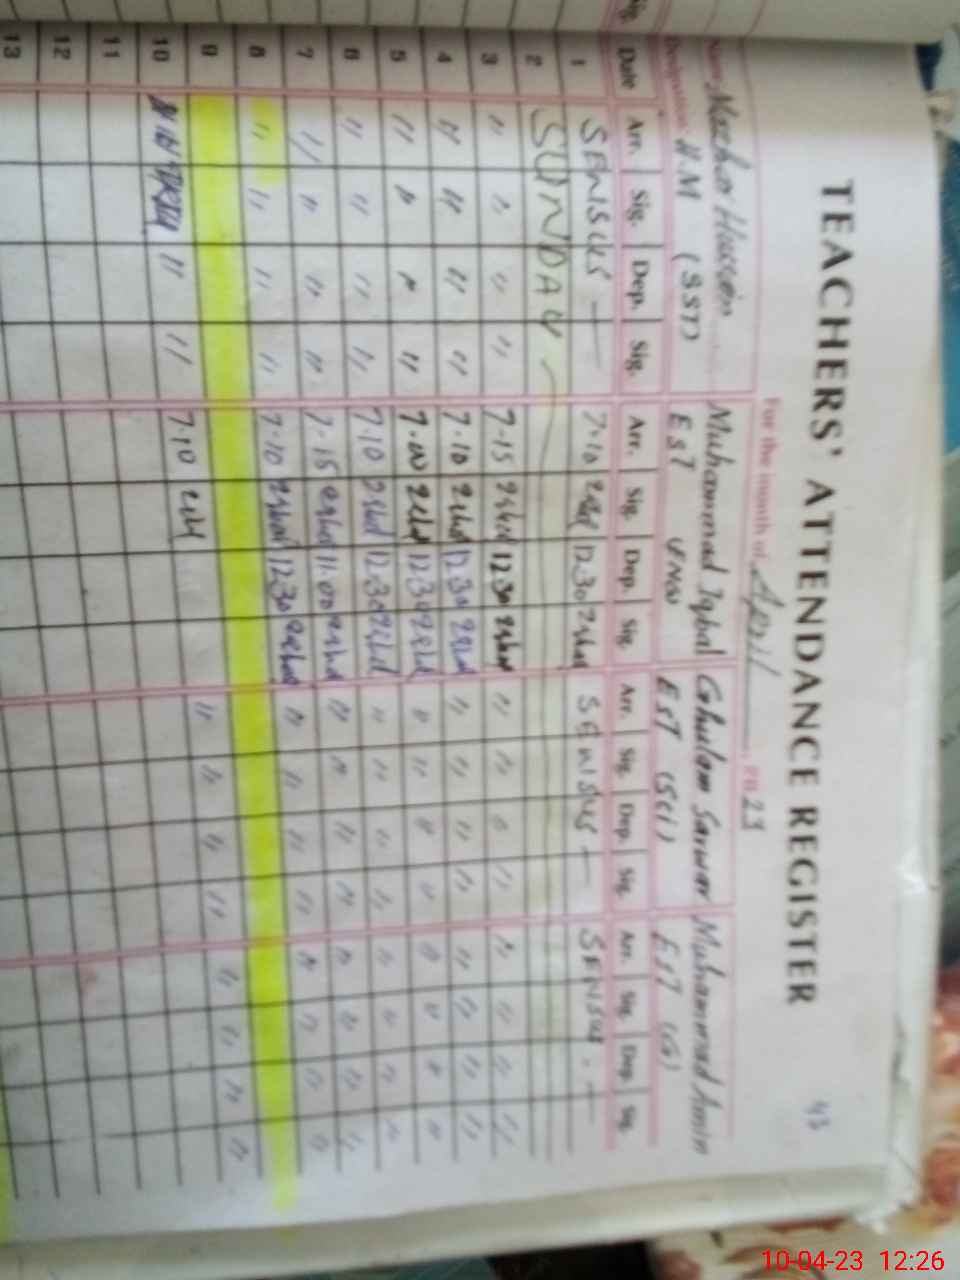 43
TEACHERS' ATTENDANCE REGISTER
For the month of April 23
Name Mazhar Hussain Muhammad Iqbal Ghulam Sarwar Muhammad Amin
Designation H.M (SST) EST EST (SCI) EST (G)
Date Arr. Sig. Dep. Sig. Arr. Sig. Dep. Sig. Arr. Sig. Dep. Sig. Arr. Sig. Dep. Sig.
1 SENSUS — 7.10 12.30 SENSUS — SENSUS. —
2 SUNDAY
3 " " " " 7.15 12.30 " " " " " " " "
4 " " " " 7.10 12.30 " " " " " " " "
5 " " " " 7.00 12.30 " " " " " " " "
6 " " " " 7.10 12.30 " " " " " " " "
7 " " " " 7.15 11.00 " " " " " " " "
8 " " " " 7.10 12.30 " " " " " " " "
9
10 " " 7.10
11
12
13
10-04-23 12:26